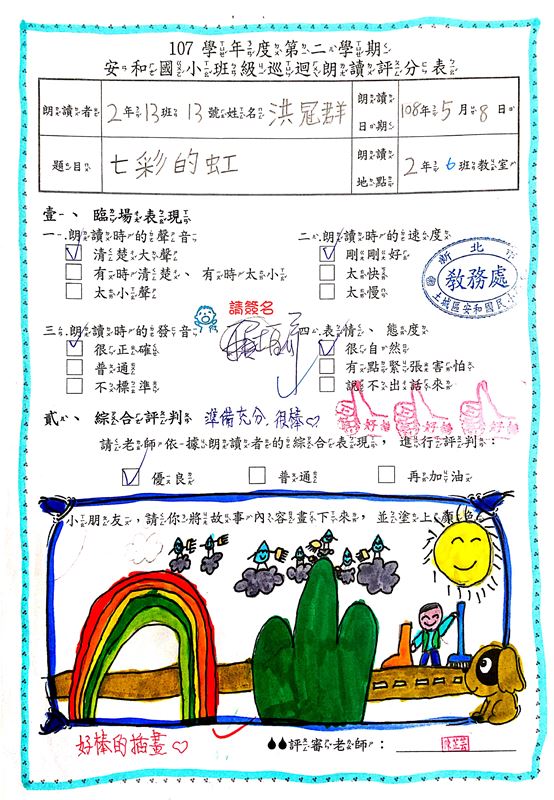 107 學年度第二學期
安和國小班級巡迴朗讀評分表
朗讀者 2年13班 13號姓名 洪冠群 朗讀日期 108年5月8日
題目 七彩的虹 朗讀地點 2年6班教室
壹、臨場表現
一.朗讀時的聲音 二.朗讀時的速度
清楚大聲 剛剛好
有時清楚、有時太小 太快
太小聲 太慢
新北市
教務處
土城區安和國民小
請簽名
三.朗讀時的發音 四.表情、態度
很正確 很自然
普通 有點緊張害怕
不標準 說不出話來
好棒 好棒 好棒
貳、綜合評判 準備充分,很棒♡
請老師依據朗讀者的綜合表現,進行評判:
優良 普通 再加油
小朋友,請你將故事內容畫下來,並塗上顏色。
好棒的插畫♡
評審老師: